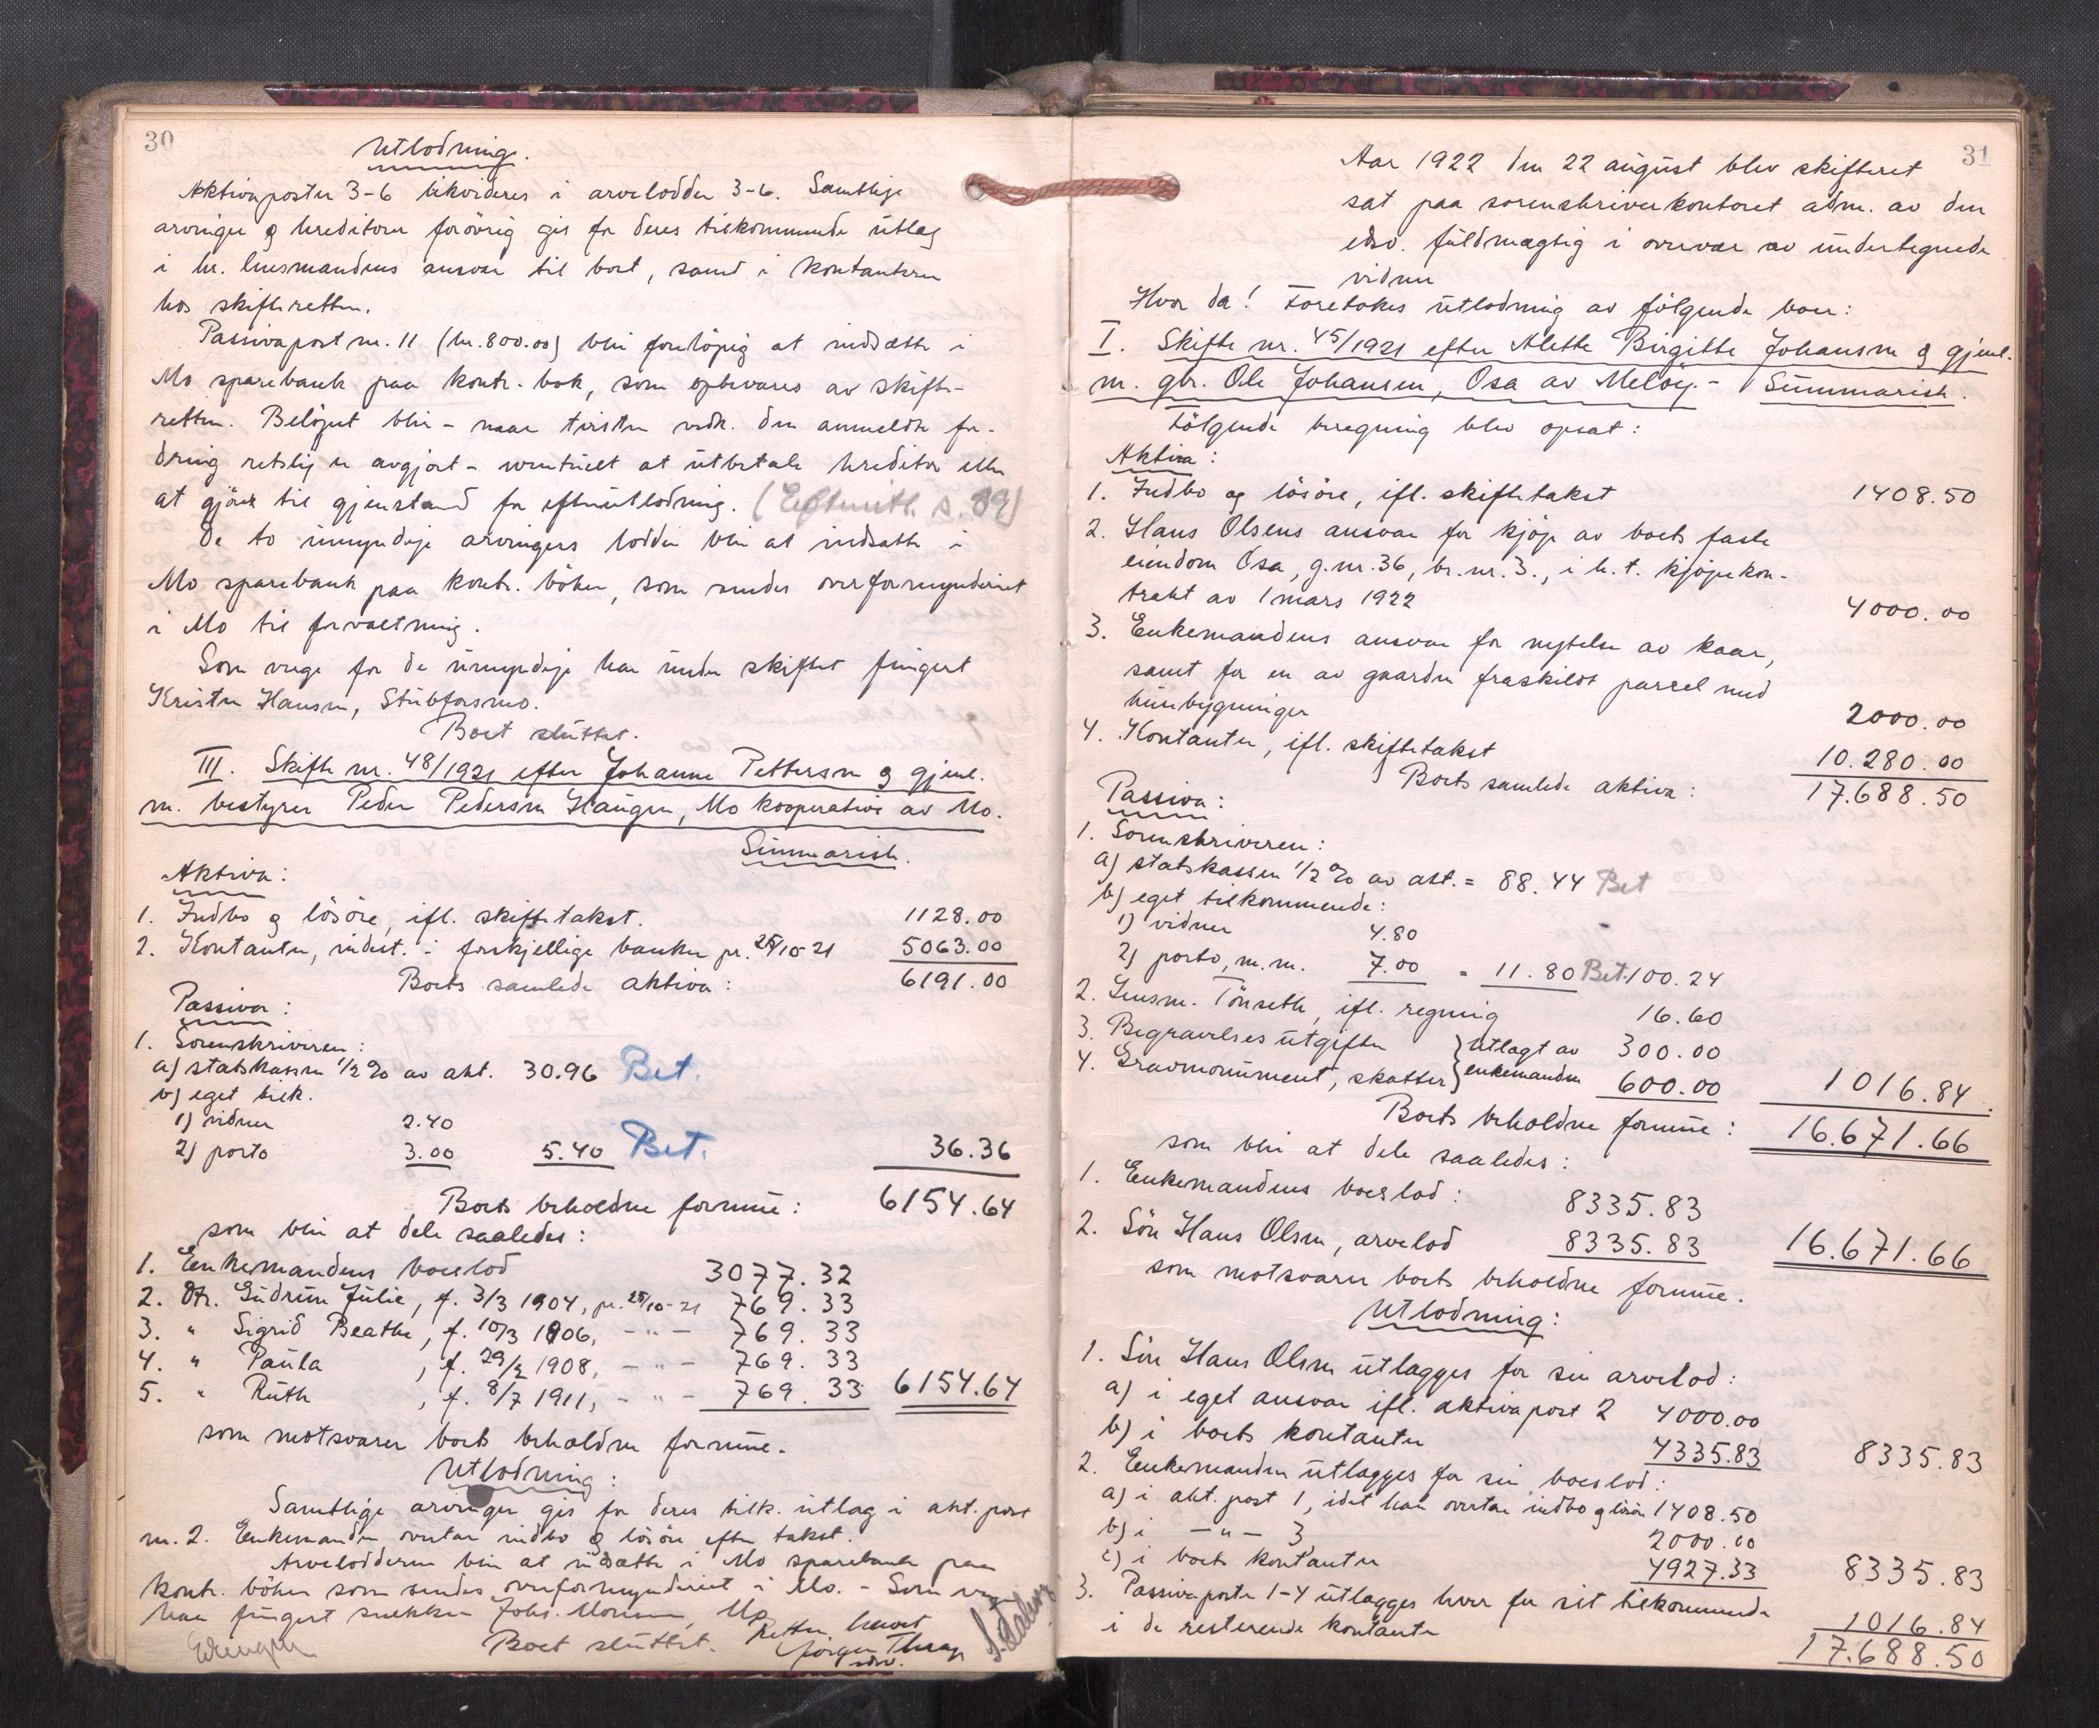 30
Utlodning.
Aktivaposter 3-6 likvideres i arvelodder 3-6. Samtlige
arvinger og kreditorer forövrig gis for deres tilkommende utlæg
i hr. lensmandens ansvar til boet, samt i kontanterne
hos skifteretten.
Passivapost nr. 11 (kr. 800.00) blir forelöpig at indsætte i
Mo sparebank paa kontr. bok, som opbevares av skifte-
retten. Belöpet blir - naar tvisten vedk. den anmeldte for-
dring retslig er avgjort - eventuelt at utbetale kreditor eller
at gjöre til gjenstand for efterutlodning. (Efterutl. s. 39)
De to umyndige arvingers lodder blir at indsætte i
Mo sparebank paa kontr. böker, som sendes overformynderiet
i Mo til forvaltning.
Som verge for de umyndige har under skiftet fungert
Kristen Hansen, Stubforsmo.
Boet sluttet.
III. Skifte nr. 48/1921 efter Johanne Pettersen og gjenl.
m. bestyrer Peder Pedersen Haugen, Mo kooperative av Mo.
Summarisk.
Aktiva:
1. Indbo og lösöre, ifl. skiftetakst. 1128.00
2. Kontanter, indest. i forskjellige banker pr. 25/10-21 5063.00
Boets samlede aktiva: 6191.00
Passiva:
1. Sorenskriveren:
a) statskassen 1/2 % av akt. 30.96 Bet.
b) eget tilk.
1) vidner 2.40
2) porto 3.00 5.40 Bet. 36.36
Boets beholdne formue: 6154.64
som blir at dele saaledes:
1. Enkemandens boeslod 3077.32
2. Dtr. Gudrun Julie, f. 3/3 1904, pr. 25/10-21 769.33
3. " Sigrid Beathe, f. 10/3 1906, -"- 769.33
4. " Paula, f. 29/2 1908, -"- 769.33
5. " Ruth, f. 8/7 1911, -"- 769.33 6154.64
som motsvarer boets beholdne formue.
Utlodning:
Samtlige arvinger gis for deres tilk. utlæg i akt. post
nr. 2. Enkemanden overtar indbo og lösöre efter takst.
Arvelodderne blir at indsætte i Mo sparebank paa
kontr. böker som sendes overformynderiet i Mo. - Som verge
har fungert snekker Johs. Monsen, Mo
Boet sluttet. Retten hævet
Jörgen Thrap
edsv.
31
Aar 1922 den 22 august blev skifteret
sat paa sorenskriverkontoret adm. av den
edsv. fuldmægtig i overvær av undertegnede
vidner
Hvor da! Foretokes utlodning av fölgende boer:
I. Skifte nr. 45/1921 efter Alette Birgitte Johansen og gjenl.
m. gbr. Ole Johansen, Osa av Melöy. - Summarisk.
Fölgende beregning blev opsat:
Aktiva:
1. Indbo og lösöre, ifl. skiftetakst 1408.50
2. Hans Olsens ansvar for kjöp av boets faste
eiendom Osa, g.nr. 36, br.nr. 3., i h. t. kjöpekon-
trakt av 1 mars 1922 4000.00
3. Enkemandens ansvar for nytelse av kaar,
samt for en av gaarden fraskilt parsel med
husbygninger 2000.00
4. Kontanter, ifl. skiftetakst 10.280.00
Boets samlede aktiva: 17.688.50
Passiva:
1. Sorenskriveren:
a) statskassen 1/2 % av akt. = 88.44 Bet
b) eget tilkommende:
1) vidner 4.80
2) porto, m.m. 7.00 = 11.80 Bet. 100.24
2. Lensm. Tönseth, ifl. regning 16.60
3. Begravelsesutgifter } utlagt av 300.00
4. Gravmonument, skatter } enkemanden 600.00 1016.84
Boets beholdne formue: 16.671.66
som blir at dele saaledes:
1. Enkemandens boeslod: 8335.83
2. Sön Hans Olsen, arvelod 8335.83 16.671.66
som motsvarer boets beholdne formue.
Utlodning:
1. Sön Hans Olsen utlægges for sin arvelod:
a) i eget ansvar ifl. aktivapost 2 4000.00
b) i boets kontanter 4335.83 8335.83
2. Enkemanden utlægges for sin boeslod:
a) i akt. post 1, idet han overtar indbo og lösöre 1408.50
b) i -"- 3 2000.00
c) i boets kontanter 4927.33 8335.83
3. Passivaposter 1-4 utlægges hver for sit tilkommende
i de resterende kontanter 1016.84
17.688.50